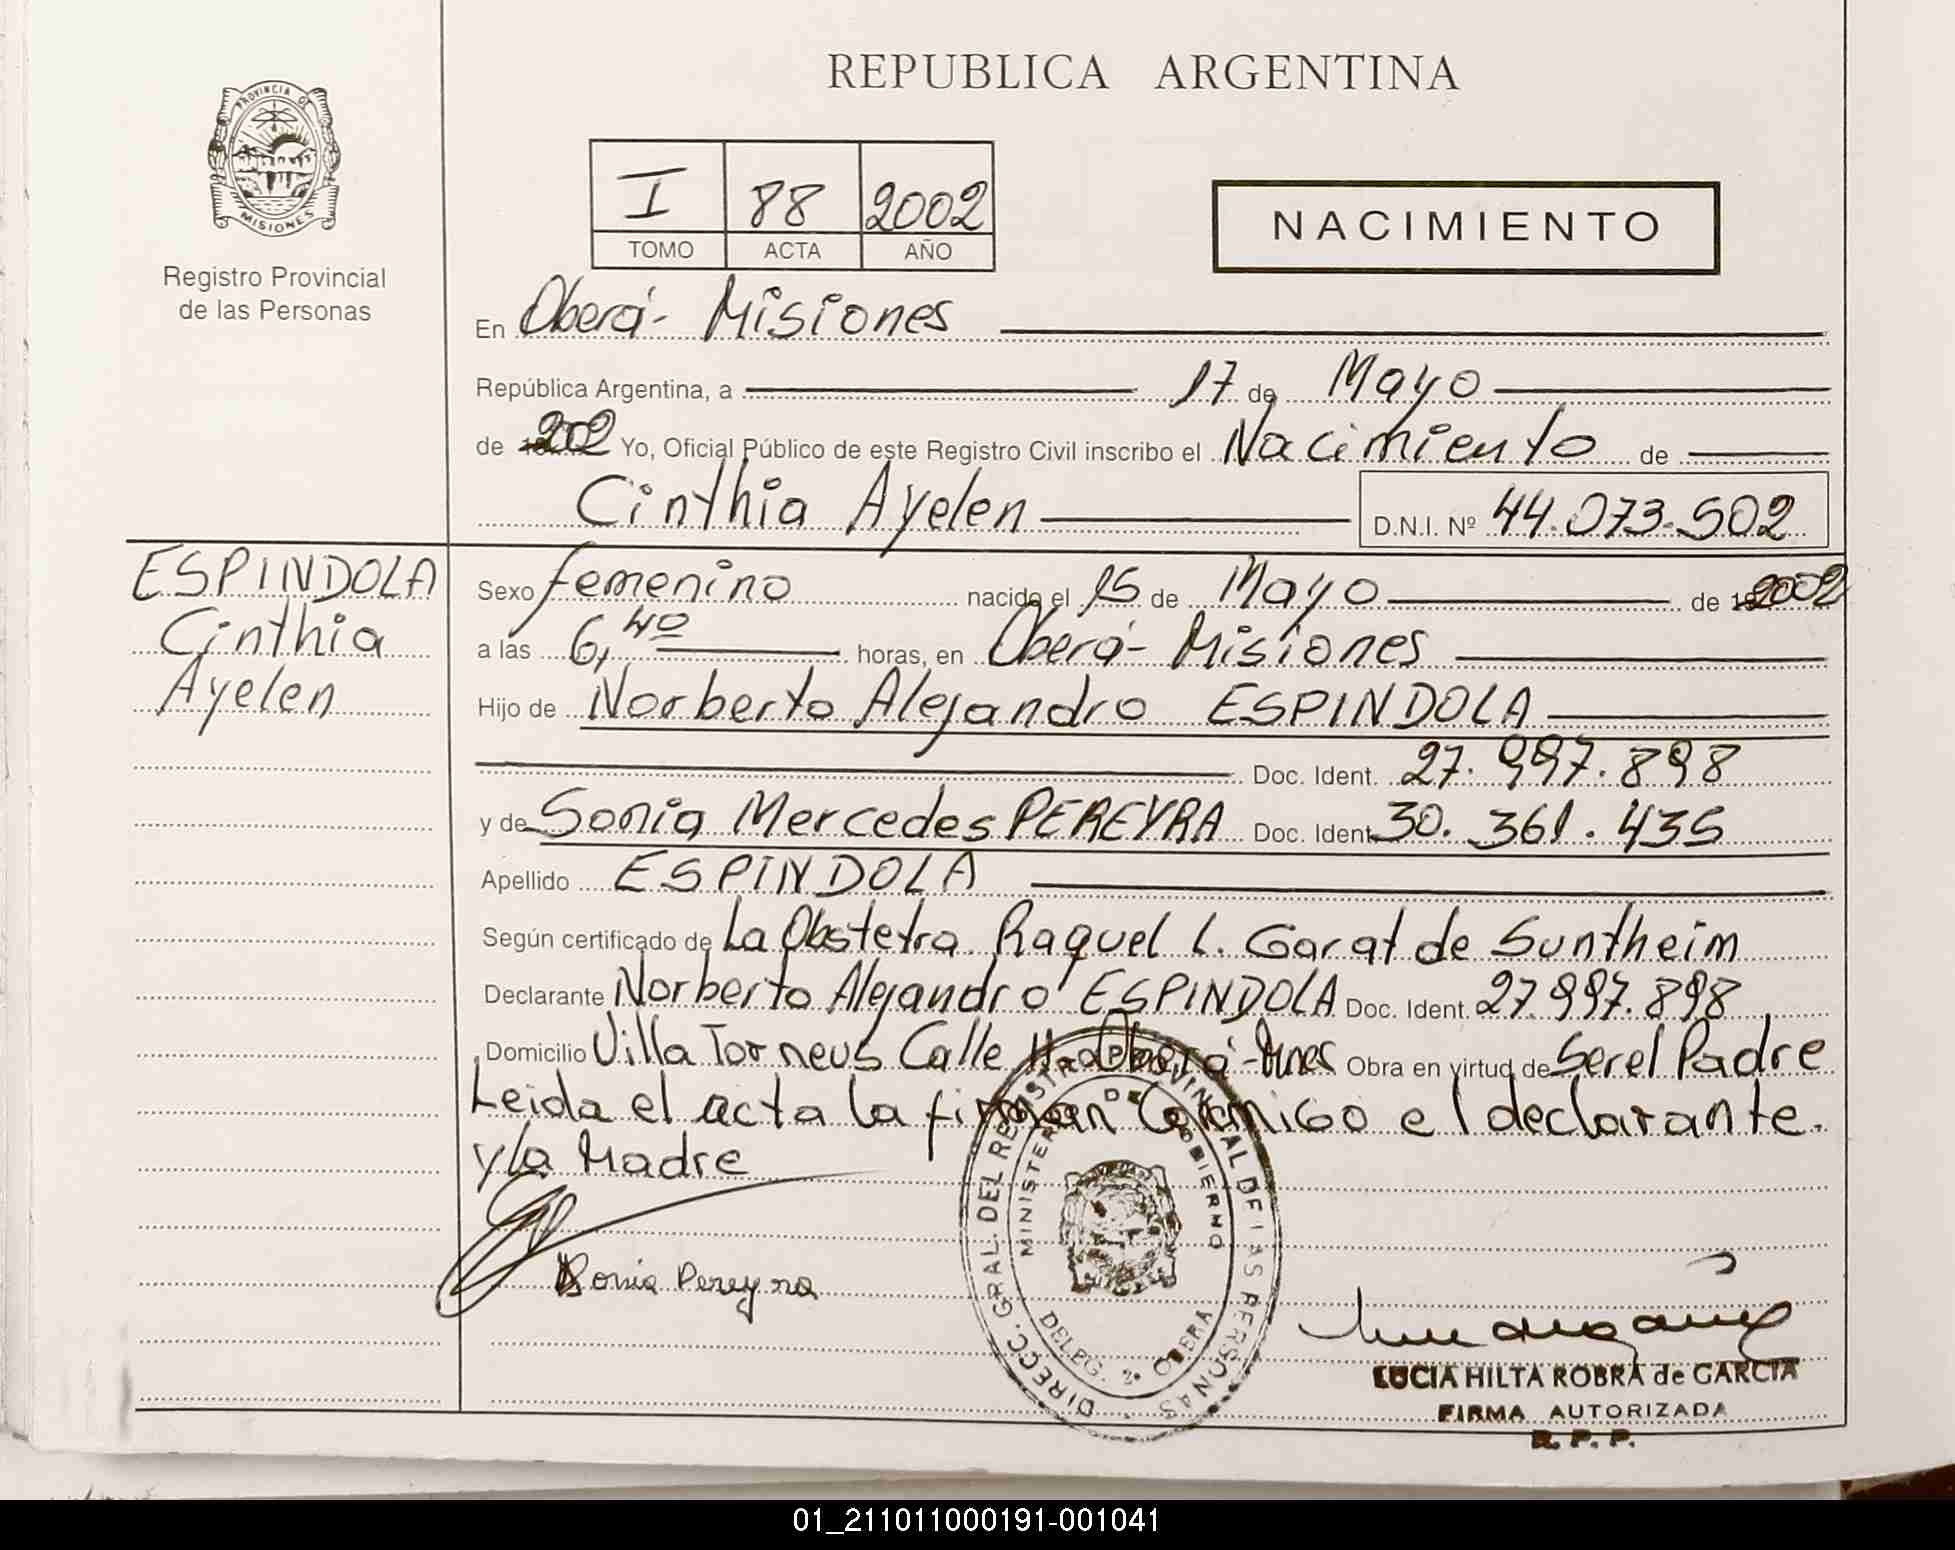 REPUBLICA ARGENTINA
PROVINCIA DE
MISIONES
Registro Provincial
de las Personas
I 88 2002
TOMO ACTA AÑO
NACIMIENTO
En Oberá- Misiones
República Argentina, a 17 de Mayo
de 2002 Yo, Oficial Público de este Registro Civil inscribo el Nacimiento de
Cinthia Ayelen D.N.I. Nº 44.073.502
ESPINDOLA
Cinthia
Ayelen
Sexo femenino nacido el 15 de Mayo de 2002
a las 6,40 horas, en Oberá- Misiones
Hijo de Norberto Alejandro ESPINDOLA
Doc. Ident. 27.997.898
y de Sonia Mercedes PEREYRA Doc. Ident. 30.361.435
Apellido ESPINDOLA
Según certificado de La Obstetra Raquel L. Garat de Suntheim
Declarante Norberto Alejandro ESPINDOLA Doc. Ident. 27.997.898
Domicilio Villa Torneus Calle Oberá-Mnes Obra en virtud de Ser el Padre
Leida el acta la firman Conmigo el declarante.
y la Madre
Sonia Pereyra
DIRECC. GRAL. DEL REGISTRO PROVINCIAL DE LAS PERSONAS
MINISTERIO DE GOBIERNO
DELEG. 2ª OBERA
LUCIA HILTA ROBRA de GARCIA
FIRMA AUTORIZADA
R. P. P.
01_211011000191-001041